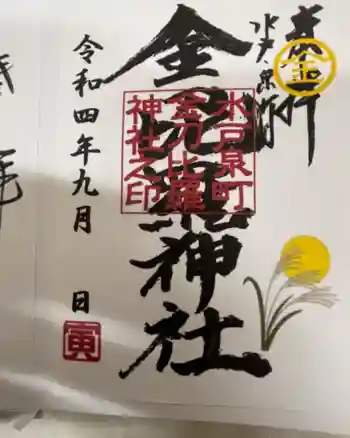 奉拝
水戸泉町
金
金刀比羅神社
水戸泉町
金刀比羅
神社之印
令和四年九月 日
寅